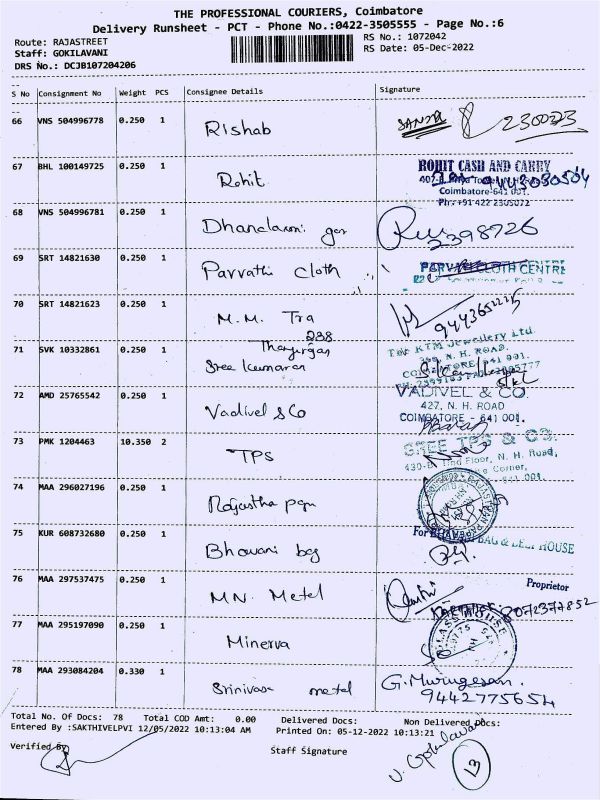 THE PROFESSIONAL COURIERS, Coimbatore
Delivery Runsheet - PCT - Phone No.:0422-3505555 - Page No.:6
Route: RAJASTREET
RS No.: 1072042
Staff: GOKILAVANI
RS Date: 05-Dec-2022
DRS No.: DCJB107204206
S No Consignment No Weight PCS Consignee Details Signature
66 VNS 504996778 0.250 1 Rishab 230023
67 BHL 100149725 0.250 1 Rohit ROHIT CASH AND CARRY
9443030504
Coimbatore-641 001.
Ph: +91 422 2305072
68 VNS 504996781 0.250 1 2398726
69 SRT 14821630 0.250 1 Parvathi Cloth PARVATHI CLOTH CENTRE
70 SRT 14821623 0.250 1 M.M. Tra
238
71 SVK 10332861 0.250 1 Sree Kumaran
The KTM Jewellery Ltd.
N. H. ROAD.
72 AMD 25765542 0.250 1 Vadivel & Co VADIVEL & CO.
427, N. H. ROAD
COIMBATORE - 641 001.
73 PMK 1204463 10.350 2 TPS SREE TPS & CO.
Floor, N. H. Road,
Corner,
74 MAA 296027196 0.250 1
75 KUR 608732680 0.250 1 Bhavani bag
BAG & BELT HOUSE
76 MAA 297537475 0.250 1 MN. Metel
Proprietor
8072377852
77 MAA 295197090 0.250 1 Minerva
78 MAA 293084204 0.330 1 Srinivasa metal G. Murugesan.
9442775654
Total No. Of Docs: 78 Total COD Amt: 0.00 Delivered Docs: Non Delivered Docs:
Entered By :SAKTHIVELPVI 12/05/2022 10:13:04 AM Printed On: 05-12-2022 10:13:21
Verified By
Staff Signature
V. Gokilavani
13